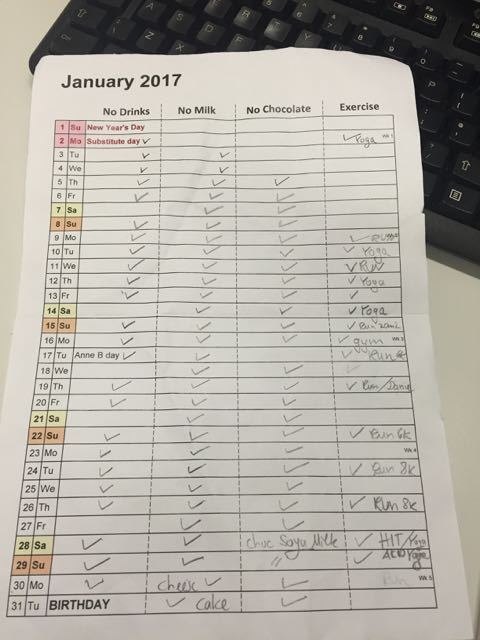 January 2017
No Drinks No Milk No Chocolate Exercise
1 Su New Year's Day
2 Mo Substitute day ✓ ✓ Yoga Wk 1
3 Tu ✓ ✓
4 We ✓ ✓
5 Th ✓ ✓ ✓
6 Fr ✓ ✓ ✓
7 Sa ✓ ✓
8 Su ✓ ✓ ✓
9 Mo ✓ ✓ ✓ ✓ Run
10 Tu ✓ ✓ ✓ ✓ Yoga
11 We ✓ ✓ ✓ ✓ Run
12 Th ✓ ✓ ✓ ✓ Yoga
13 Fr ✓ ✓ ✓ ✓
14 Sa ✓ ✓ ✓ Yoga
15 Su ✓ ✓ ✓ ✓ Run
16 Mo ✓ ✓ ✓ ✓ gym Wk 3
17 Tu Anne B day ✓ ✓ ✓ Run
18 We ✓ ✓
19 Th ✓ ✓ ✓ ✓ Run/
20 Fr ✓ ✓ ✓
21 Sa ✓ ✓
22 Su ✓ ✓ ✓ ✓ Run 6k
23 Mo ✓ ✓ ✓ Wk 4
24 Tu ✓ ✓ ✓ ✓ Run 8k
25 We ✓ ✓ ✓
26 Th ✓ ✓ ✓ ✓ Run 8k
27 Fr ✓ ✓
28 Sa ✓ ✓ Choc Soya Milk ✓ HIT/Yoga
29 Su ✓ ✓ " ✓ Yoga
30 Mo ✓ Cheese ✓ ✓ Run Wk 5
31 Tu BIRTHDAY ✓ Cake ✓